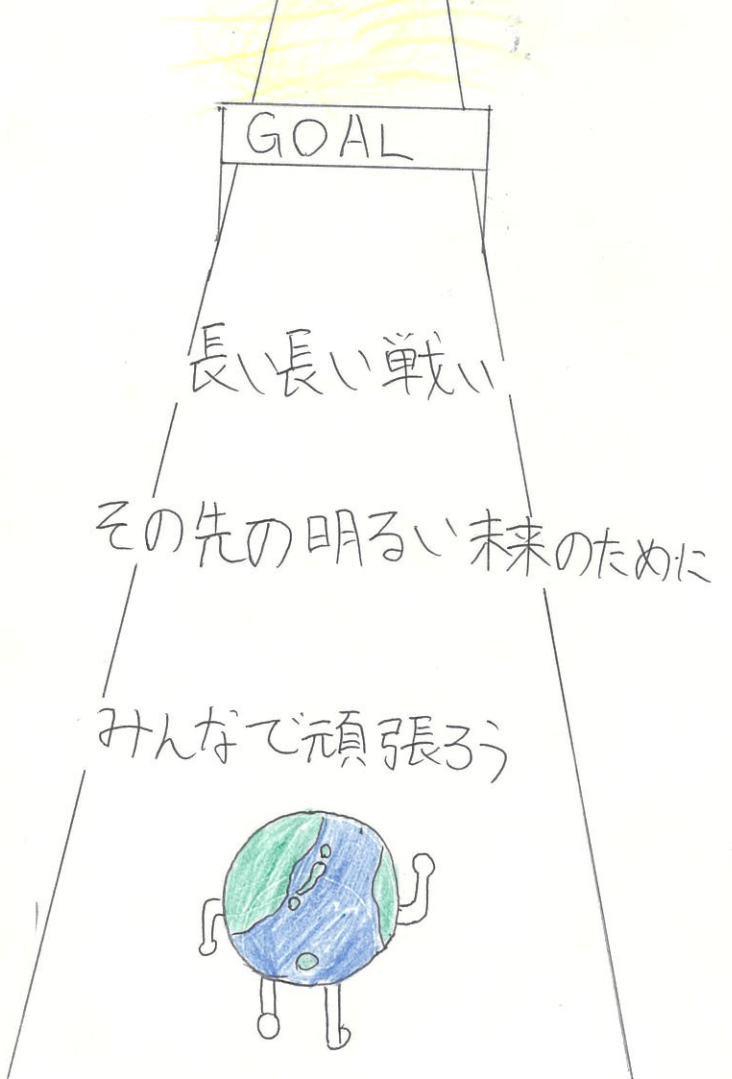 GOAL
長い長い戦い
その先の明るい未来のために
みんなで頑張ろう